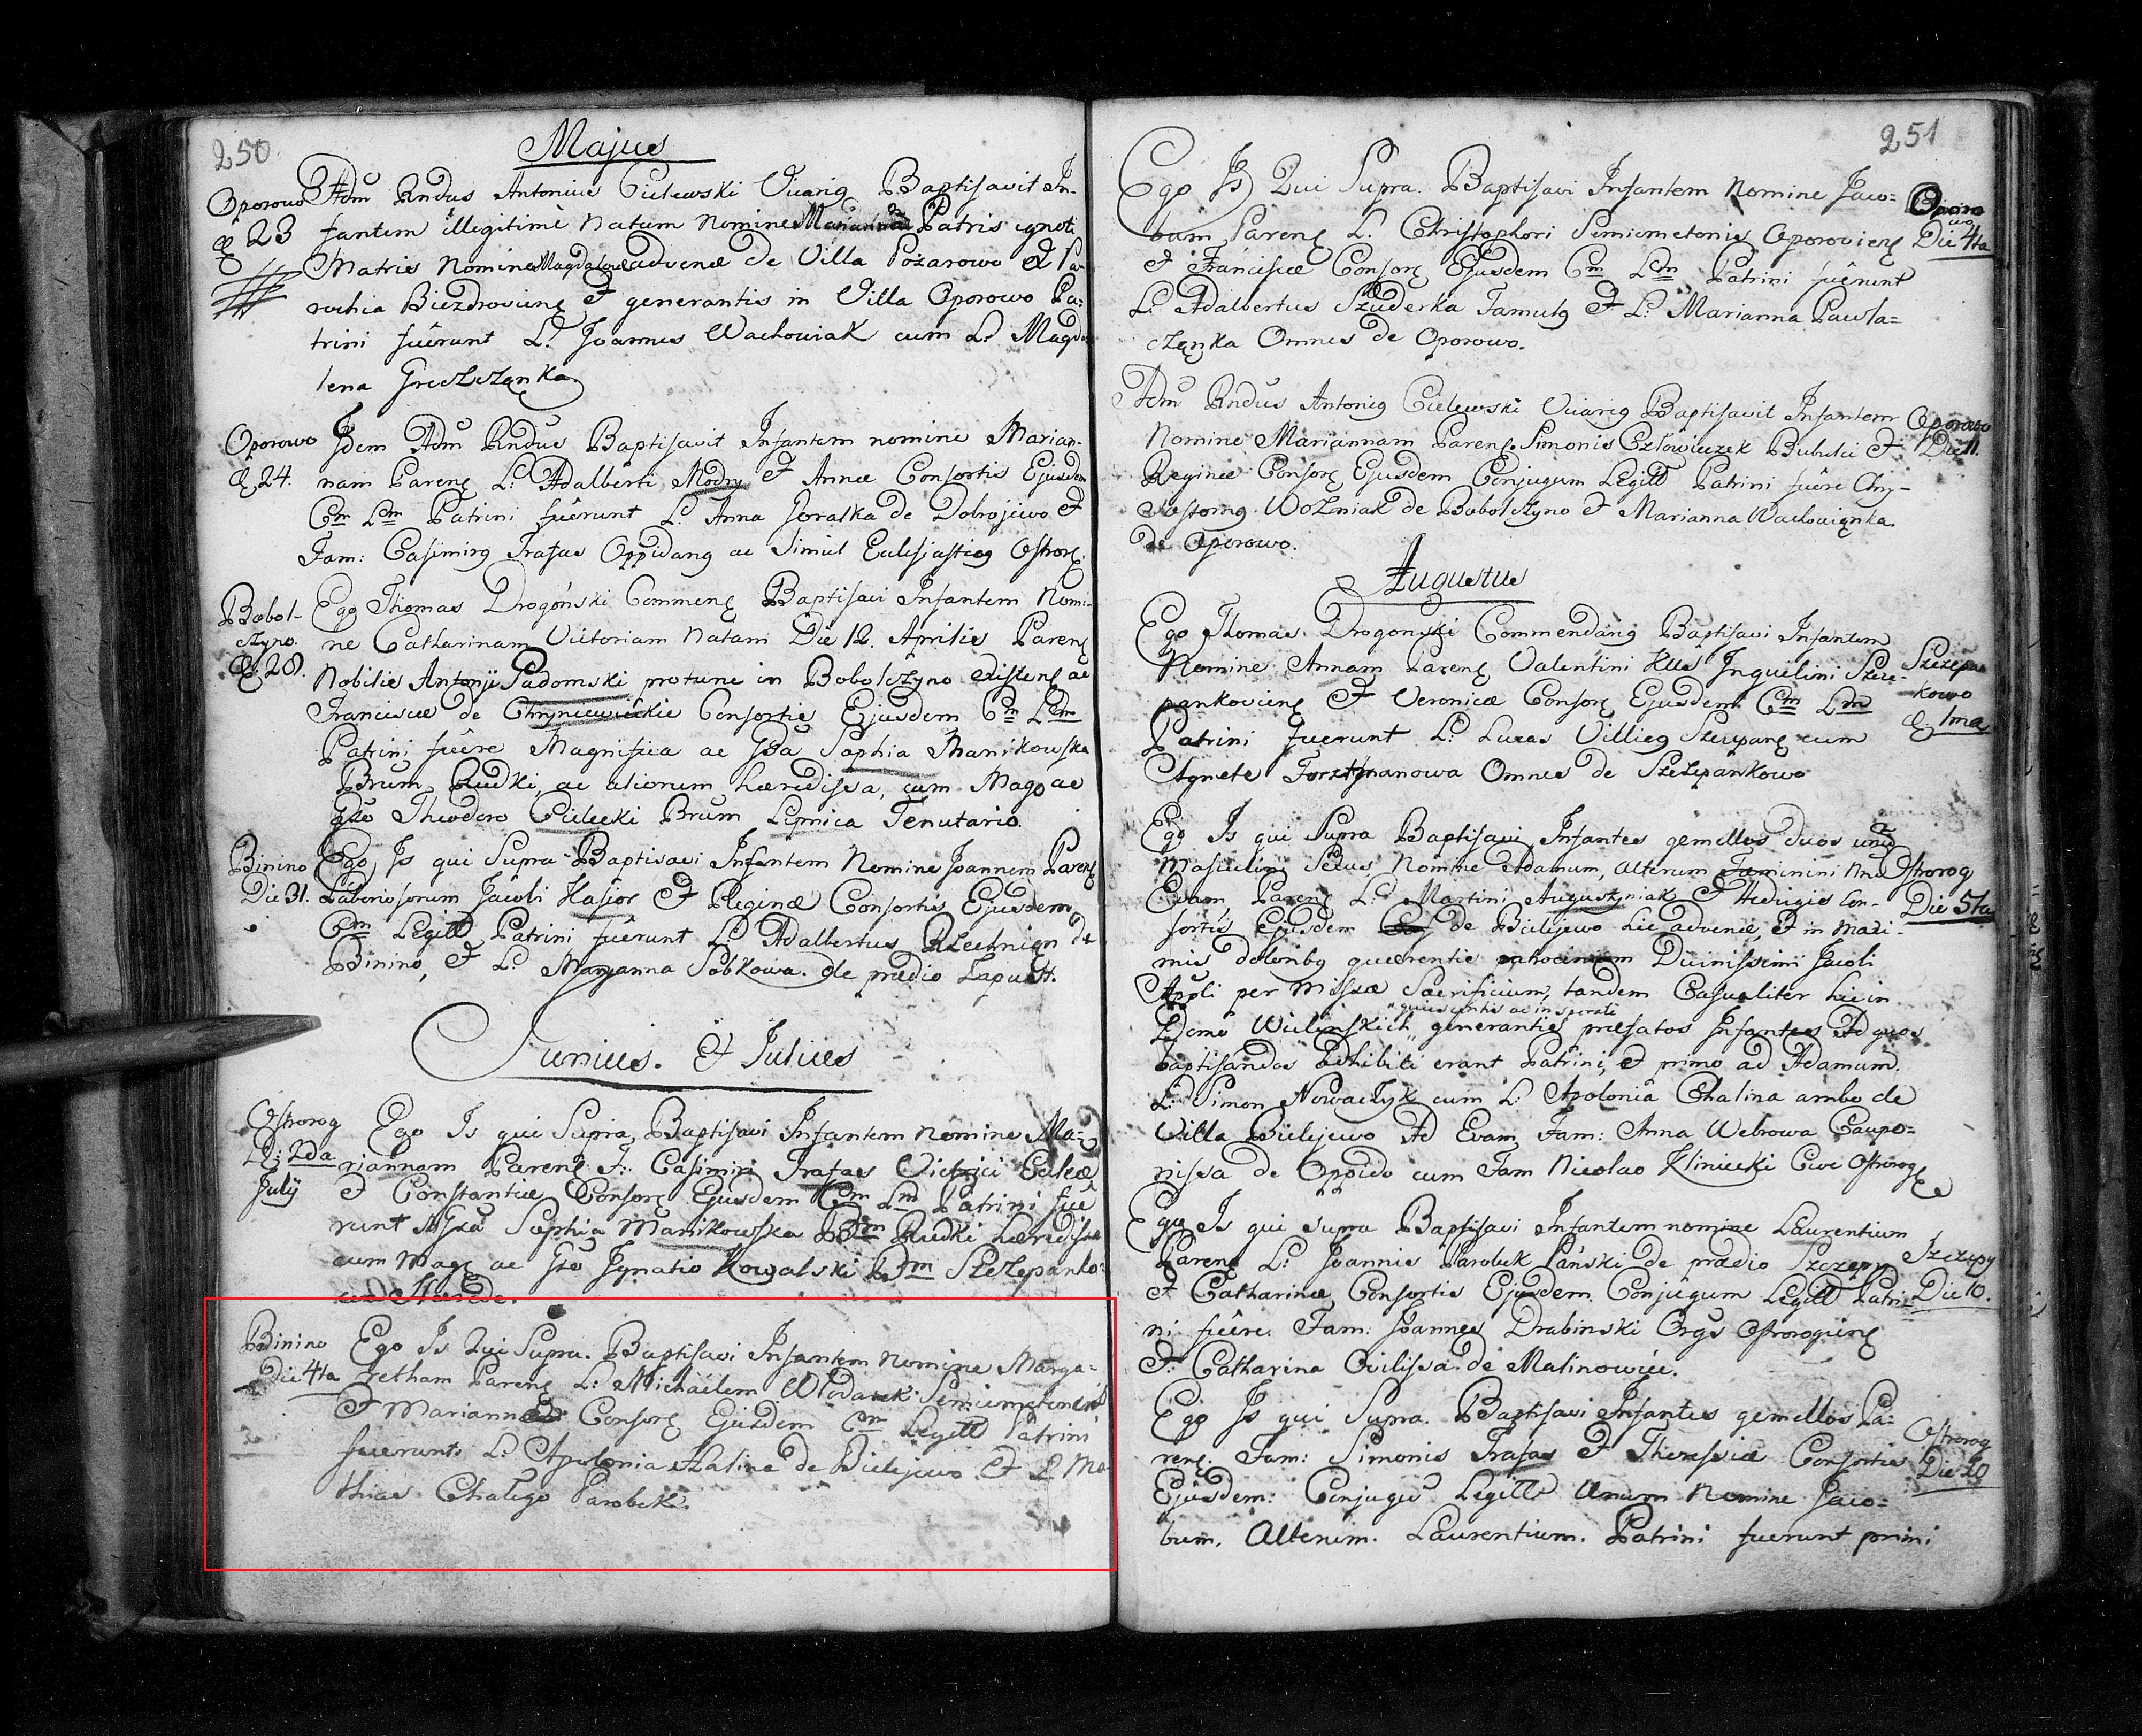 250
Majus
Oporowo Adm Rndus Antonius Cielewski Vicarig Baptisavit In-
d 23 fantem illegitimè Natum Nomine Mariannam Patris ignoti
Matris Nomine Magdalenæ advenæ de Villa Pożarowo et Pa-
rochia Biezdrovieng et generantis in Villa Oporowo Pa-
trini fuêrunt L. Joannes Wachowiak cum L. Magda
lena Grzeszczonka
Oporowo Idem Adm Rndus Baptisavit Infantem nomine Marian-
d 24. nam Pareng L: Adalberti Modry et Annæ Consortis Ejusdem
Cm Lm Patrini fuêrunt L. Anna de Dobrojewo et
Fam: Casimirg Trafas Oppidang ac Simul Eclesiasticg Ostrorg.
Bobol- Ego Thomas Drogoński Commeng Baptisavi Infantem Nomi-
czyno. ne Catharinam Victoriam Natam Die 12. Aprilis Pareng
d 28. Nobilis Antonij Sadomski protunc in Bobolczyno existeng ac
Franciscæ de Chryniewickie Consortis Ejusdem Cm Lm
Patrini fuêre Magnifica ac Gsa Sophia Manikowska
Brum Rudki, ac aliorum hæredissa, cum Mago ac
Gso Theodoro Cielecki Brum Lipnica Tenutario.
Binino Ego Is qui Supra Baptisavi Infantem Nomine Joannem Pareng
Die 31. Laboriosorum Jacobi Kasior et Reginæ Consortis Ejusdem
Cm Legitt Patrini fuêrunt L. Adalbertus de
Binino, et L. Maryanna Sobkowa. de prædio Zapust.
Junius. et Julius
Ostrorog Ego Is qui Supra Baptisavi Infantem nomine Ma-
D: 2da riannam Pareng F: Casimiri Trafas Eccles
July et Constantiæ Consorg Ejusdem Cm Lm Patrini fuê
runt Gsa Sophia Manikowska Brm Rudki hæredissa
cum Mago ac Gso Ignatio Kowalski Brm Szczepanko-
Hærede.
Binino Ego Is Qui Supra. Baptisavi Infantem nomine Marga-
Die 4ta retham Pareng L: Michaëlem Włodarek Semicmetonem
et Mariannæ Consorg Ejusdem Cm Legitt Patrini
fuerunt L: Apolonia Halina de Bielejewo et L Ma-
thias Chalego Parobek.
251
Ego Is Qui Supra. Baptisavi Infantem Nomine Jaco- Oporo
bum Pareng L. Christophori Semicmetonis Oporovieng Die 4ta
et Franciscæ Consorg Ejusdem Cm Lm Patrini fuêrunt
L. Adalbertus Szuderka Famulg et L. Marianna Pawla-
czonka Omnes de Oporowo.
Adm Rndus Antonig Cielewski Vicarig Baptisavit Infantem Oporowo
Nomine Mariannam Pareng Simonis Człowieczek Bubulci et Die 11.
Reginæ Consorg Ejusdem Conjugum Legitt Patrini fuêre Chry-
Wozniak de Bobolczyno et Marianna Wachowionka
de Oporowo.
Augustus
Ego Thomas Drogonski Commendang Baptisavi Infantem
Nomine Annam Pareng Valentini Kus Inquilini Szcze- Szczepan
pankovieng et Veronicæ Consorg Ejusdem Cm Lm kowo
Patrini fuerunt L: Lucas Villicg Szczepang cum d 1ma
Agnete Forsztmanowa Omnes de Szczepankowo
Ego Is qui Supra Baptisavi Infantes gemellos duos unu
Masculini Sexus, Nomine Adamum, alterum Fæminini Nne Ostrorog
Evam Pareng L: Martini Augustyniak et Hedvigis Con- Die 5ta
sortis Ejusdem de Bielejewo hic advenæ, et in maxi-
mis doloribg quærentis patrocinium Divinissimi Jacobi
Apoli per Missæ Sacrificium, tandem Casualiter hic in
domo Wielinskich generantis præfatos Infantes Ad quos
baptisandos adhibiti erant Patrini, et primo ad Adamum.
L: Simon Nowaczyk cum L: Apolonia Chalina ambo de
Villa Bielejewo Ad Evam Fam: Anna Webrowa Caupo-
nissa de Oppido cum Fam Nicolao Kliniecki Cive Ostrorog
Ego Is qui supra Baptisavi Infantem nomine Laurentium
Pareng L: Joannis Parobek Pański de prædio Szczepy Szczepy
et Catharinæ Consortis Ejusdem Conjugum Legitt Patri- Die 10.
ni fuêre Fam: Joannes Drabinski Orgs Ostrorogieng
et Catharina Ovilissa de Malinowiec.
Ego Is qui Supra. Baptisavi Infantes gemellos Pa-
reng. Fam: Simonis Trafas et Theressiæ Consortis Ostrorog
Ejusdem: Conjugu Legitt Unum Nomine Jaco- Die 20
bum, Alterum. Laurentium. Patrini fuerunt primi